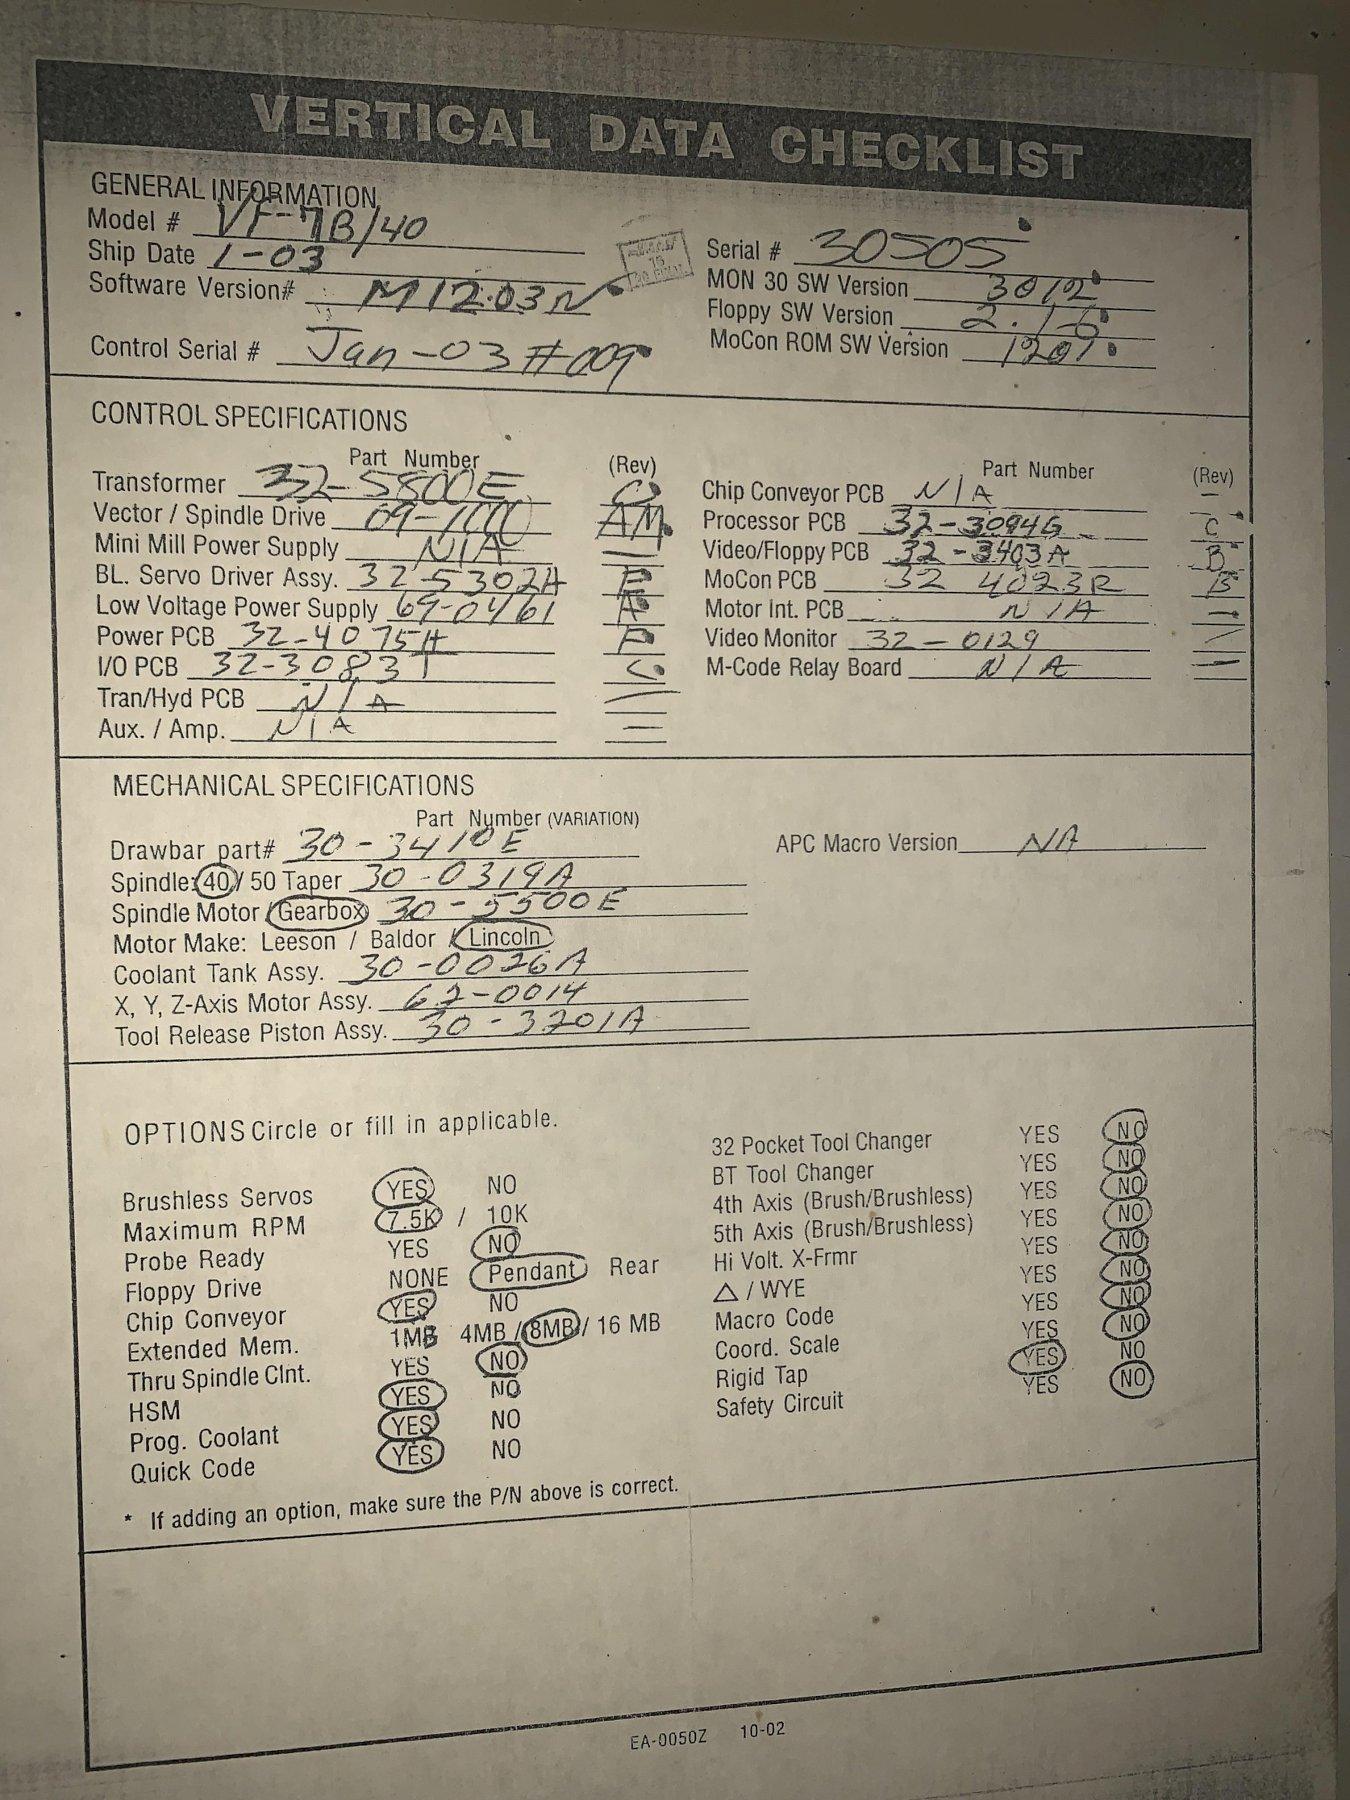 VERTICAL DATA CHECKLIST
GENERAL INFORMATION
Model # VF-7B/40
Ship Date 1-03
Software Version# M12.03N
Control Serial # Jan-03 #009
Serial # 30505
MON 30 SW Version 3012
Floppy SW Version 2.16
MoCon ROM SW Version 1207
CONTROL SPECIFICATIONS
Part Number (Rev)
Transformer 32-5800E C
Vector / Spindle Drive AM
Mini Mill Power Supply N/A —
BL. Servo Driver Assy. 32-5302A E
Low Voltage Power Supply 69-0461 A
Power PCB 32-4075H F
I/O PCB 32-3083T C
Tran/Hyd PCB N/A —
Aux. / Amp. N/A —
Part Number (Rev)
Chip Conveyor PCB N/A —
Processor PCB 32-3094G C
Video/Floppy PCB 32-3403A B
MoCon PCB 32 4023R B
Motor Int. PCB N/A —
Video Monitor 32-0129 —
M-Code Relay Board N/A —
MECHANICAL SPECIFICATIONS
Part Number (VARIATION)
Drawbar part# 30-3410E
Spindle: 40 / 50 Taper 30-0319A
Spindle Motor / Gearbox 30-5500E
Motor Make: Leeson / Baldor / Lincoln
Coolant Tank Assy. 30-0026A
X, Y, Z-Axis Motor Assy. 62-0014
Tool Release Piston Assy. 30-3201A
APC Macro Version NA
OPTIONS Circle or fill in applicable.
Brushless Servos YES NO
Maximum RPM 7.5K / 10K
Probe Ready YES NO
Floppy Drive NONE Pendant Rear
Chip Conveyor YES NO
Extended Mem. 1MB 4MB / 8MB / 16 MB
Thru Spindle Clnt. YES NO
HSM YES NO
Prog. Coolant YES NO
Quick Code YES NO
32 Pocket Tool Changer YES NO
BT Tool Changer YES NO
4th Axis (Brush/Brushless) YES NO
5th Axis (Brush/Brushless) YES NO
Hi Volt. X-Frmr YES NO
△ / WYE YES NO
Macro Code YES NO
Coord. Scale YES NO
Rigid Tap YES NO
Safety Circuit YES NO
* If adding an option, make sure the P/N above is correct.
EA-0050Z 10-02